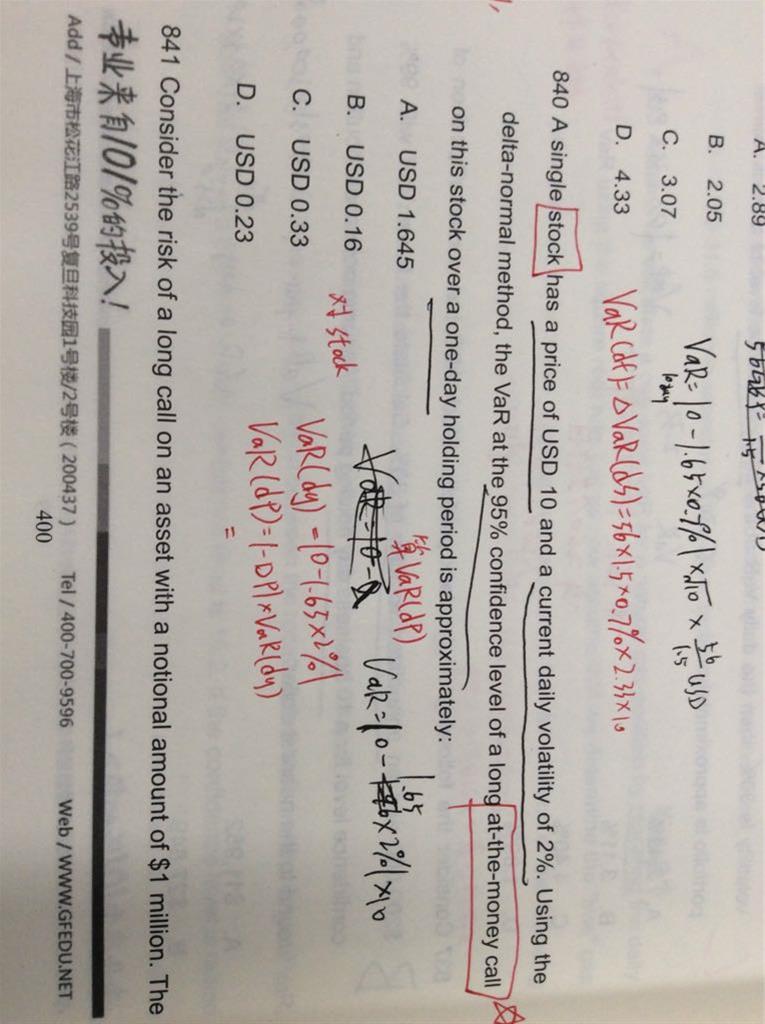 A. 2.89
B. 2.05
C. 3.07
D. 4.33
VaR = |0 - 1.65 × 0.7%| × √10 × 56/1.5 USD
10day
VaR(df) = Δ VaR(ds) = 56 × 1.5 × 0.7% × 2.33 × 10
840 A single stock has a price of USD 10 and a current daily volatility of 2%. Using the
delta-normal method, the VaR at the 95% confidence level of a long at-the-money call
on this stock over a one-day holding period is approximately:
A. USD 1.645
B. USD 0.16
C. USD 0.33
D. USD 0.23
VaR(dP)
VaR = |0 - 1.65 × 2%| × 10
对 stock
VaR(dy) = |0 - 1.65 × 2%|
VaR(dP) = |-D P| × VaR(dy)
=
841 Consider the risk of a long call on an asset with a notional amount of $1 million. The
专业来自101%的投入!
Add / 上海市松花江路2539号复旦科技园1号楼/2号楼 ( 200437 ) Tel / 400-700-9596 Web / WWW.GFEDU.NET
400